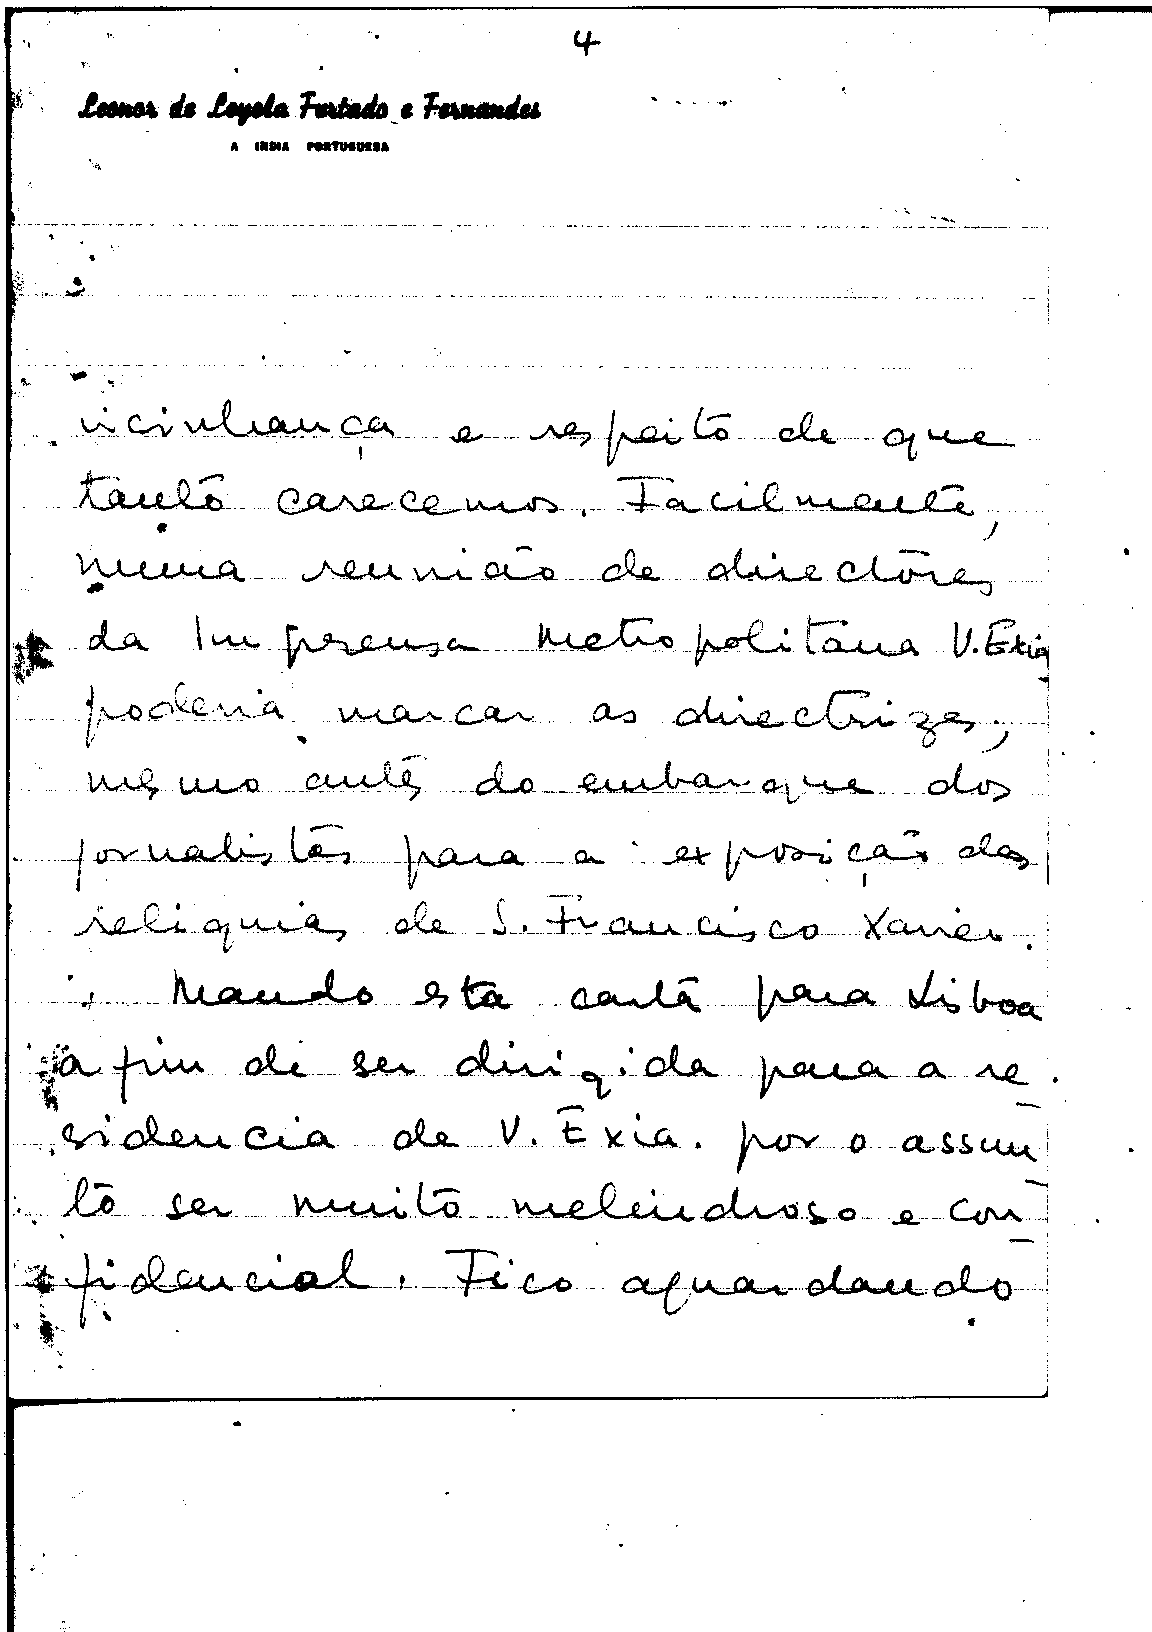 4
Leonor de Loyola Furtado e Fernandes
A INDIA PORTUGUESA
vicinhança e respeito de que
tanto carecemos. Facilmente,
numa reunião de directores
da Imprensa Metropolitana V. Exia
poderia marcar as directrizes,
mesmo antes do embarque dos
jornalistas para a exposição das
reliquias de S. Francisco Xavier.
Mando esta carta para Lisboa
a fim de ser dirigida para a re-
sidencia de V. Exia. por o assun-
to ser muito melindroso e con-
fidencial. Fico aguardando